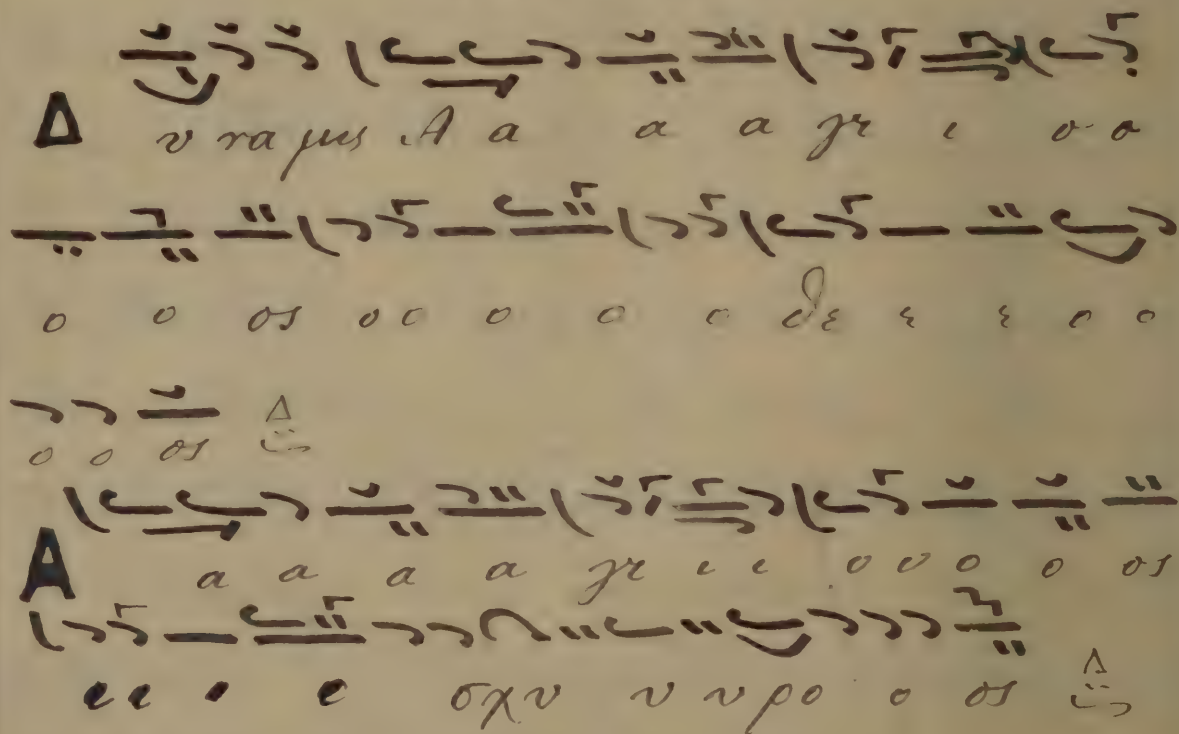 Δ υ ναμις Α α α α γι ι ο ο
ο ο ος ο ο ο ο ο θε ε ε ο ο
ο ο ος Δ
Α α α α α γι ι ι ο ο ο ο ος
ι ι ι ι σχυ υ υ ρο ο ος Δ